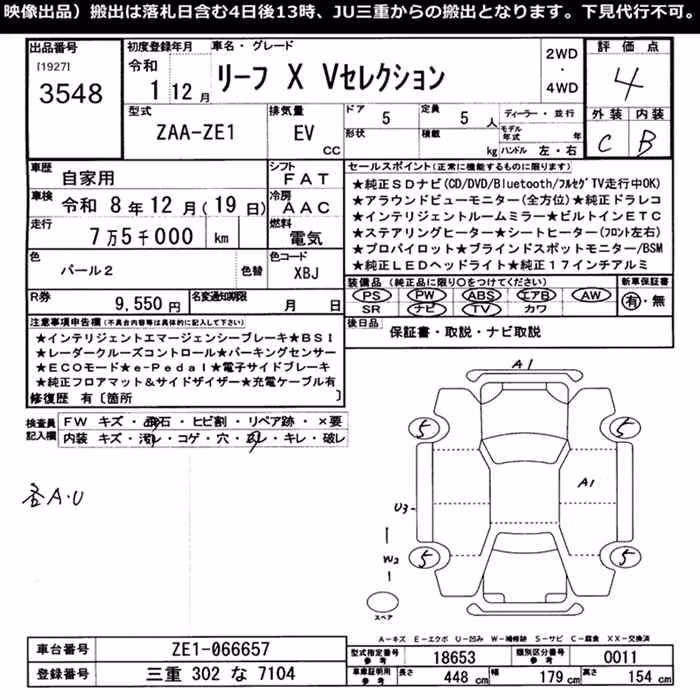 映像出品）搬出は落札日含む4日後13時、JU三重からの搬出となります。下見代行不可。
出品番号
[1927]
3548
初度登録年月
令和
1 12月
車名・グレード
リーフ X Vセレクション
2WD
・
4WD
評価点
4
外装 内装
C B
型式
ZAA-ZE1
排気量
EV
CC
ドア 5
形状
定員 5 人
積載 kg
ディーラー・並行
モデル年式 年
ハンドル 左・右
車歴
自家用
シフト
FAT
車検
令和 8年12月(19日)
冷房
AAC
走行
7万5千000 km
燃料
電気
色
パール2
色替
色コード
XBJ
R券
9,550円
名変通知期限
月 日
セールスポイント(正常に機能するものに限ります)
★純正SDナビ(CD/DVD/Bluetooth/フルセグTV走行中OK)
★アラウンドビューモニター(全方位)★純正ドラレコ
★インテリジェントルームミラー★ビルトインETC
★ステアリングヒーター★シートヒーター(フロント左右)
★プロパイロット★ブラインドスポットモニター/BSM
★純正LEDヘッドライト★純正17インチアルミ
装備品 (純正品に限り○をつけてください)
PS PW ABS エアB AW
SR ナビ TV カワ
新車保証書
有・無
後日品
保証書・取説・ナビ取説
注意事項申告欄(不具合内容等は具体的に記入して下さい)
★インテリジェントエマージェンシーブレーキ★BSI
★レーダークルーズコントロール★パーキングセンサー
★ECOモード★e-Pedal★電子サイドブレーキ
★純正フロアマット&サイドザイザー★充電ケーブル有
修復歴 有〔箇所 〕
検査員
記入欄
FW キズ・飛石・ヒビ割・リペア跡・×要
内装 キズ・汚レ・コゲ・穴・スレ・キレ・破レ
各A・U
A1
5
5
A1
U3
W2
5
5
スペア
A−キズ E−エクボ U−凹み W−補修跡 S−サビ C−腐食 XX−交換済
車台番号
ZE1-066657
登録番号
三重 302 な 7104
型式指定番号
参考
18653
類別区分番号
参考
0011
車庫証明用
参考
長さ 448 cm
幅 179 cm
高さ 154 cm